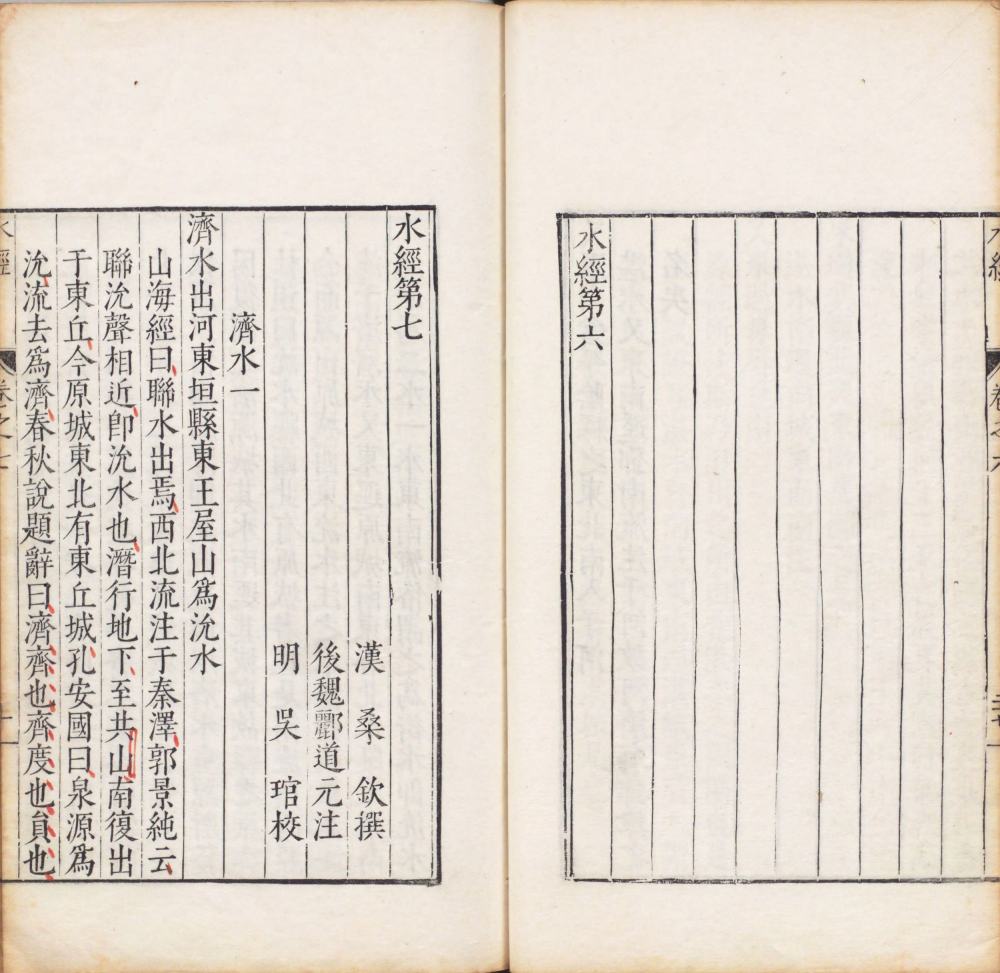 水經第六
水經第七
漢桑欽撰
後魏酈道元注
明吳琯校
濟水一
濟水出河東垣縣東王屋山爲沇水
山海經曰聯水出焉西北流注于秦澤郭景純云
聯沇聲相近卽沇水也潛行地下至共山南復出
于東丘今原城東北有東丘城孔安國曰泉源爲
沇流去爲濟春秋說題辭曰濟齊也齊度也貟也